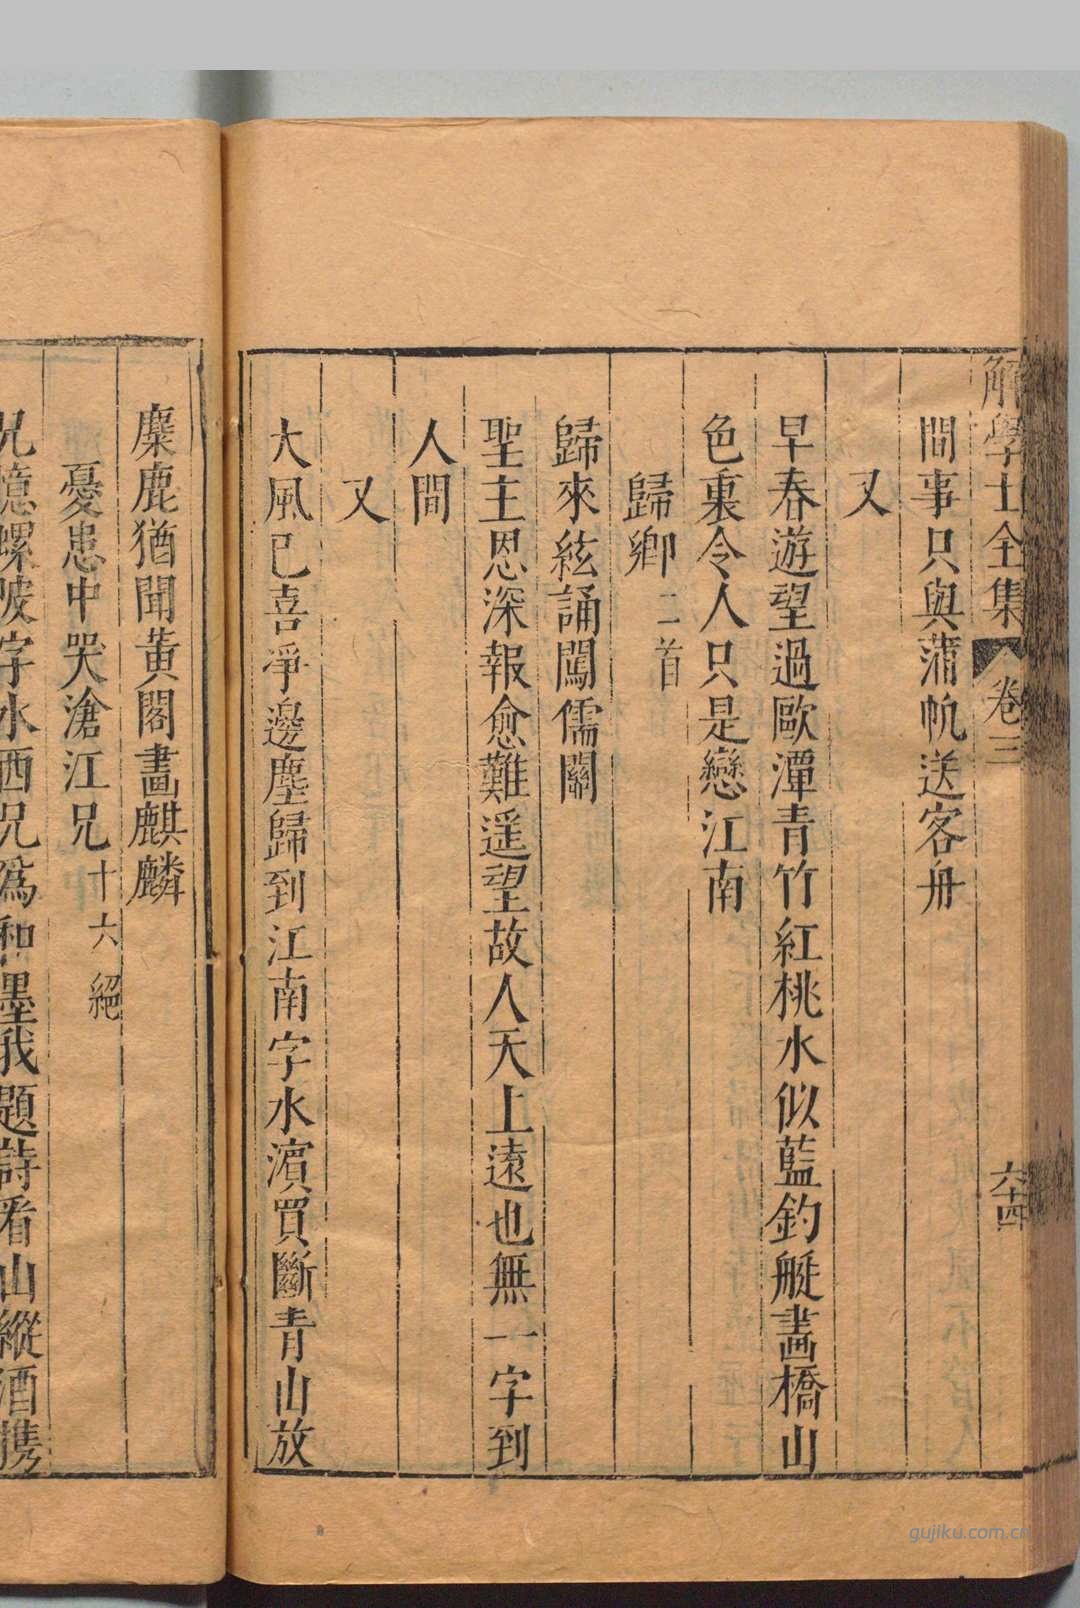 解學士全集
卷三
六十四
間事只與蒲帆送客舟
又
早春遊望過歐潭青竹紅桃水似藍釣艇畵橋山
色裏令人只是戀江南
歸鄉二首
歸來絃誦闖儒關
聖主恩深報愈難遥望故人天上遠也無一字到
人間
又
大風已喜凈邊塵歸到江南字水濵買斷青山放
麋鹿猶聞黄閣畵麒麟
憂患中哭滄江兄十六絕
兄憶螺陂字水西兄爲和墨我題詩看山縱酒携
gujiku.com.cn